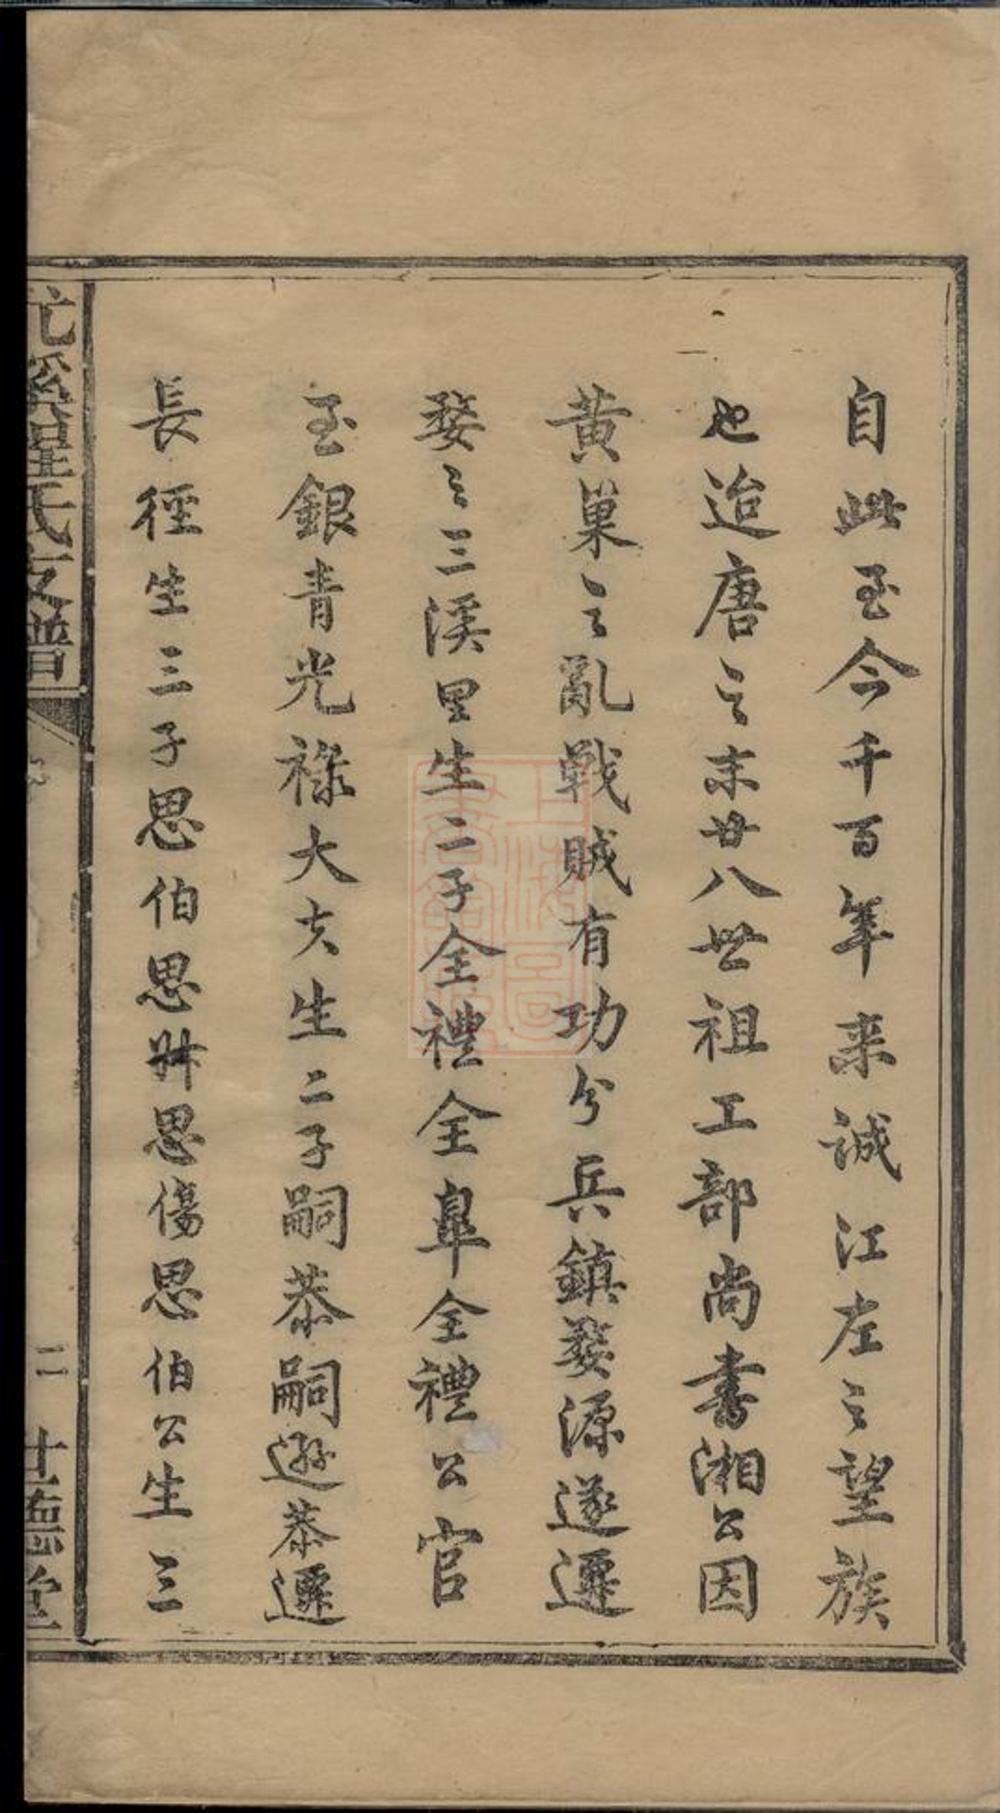 自此至今千百年来誠江左之望族
也迨唐之末廿八世祖工部尚書湘公因
黄巢之亂戰賊有功分兵鎮婺源遂遷
婺之三溪里生二子全禮全臯全禮公官
至銀青光禄大夫生二子嗣恭嗣遜恭遷
長徑生三子思伯思艸思傷思伯公生三
溪程氏支譜
二
世德堂
上海圖書館藏